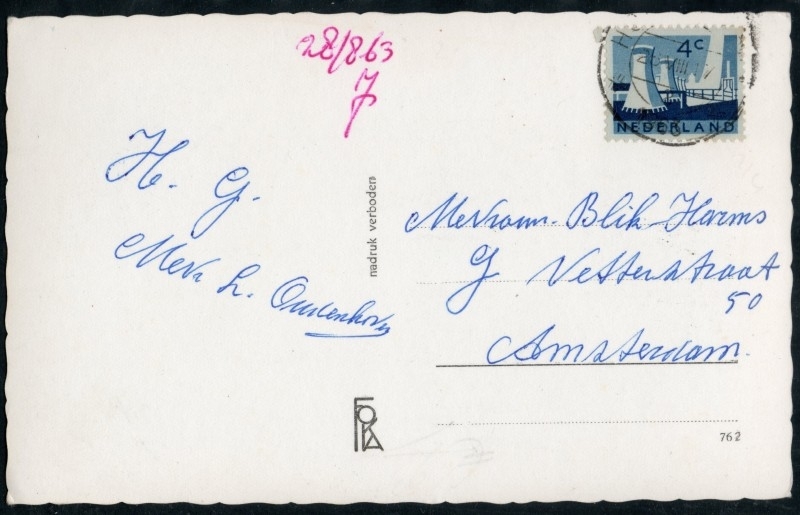 28/8 63
J
4c
NEDERLAND
H. G.
Mevr L. Oudenhoven
nadruk verboden
Mevrouw Blik-Harms
J Vetterstraat
50
Amsterdam.
FOKA
762